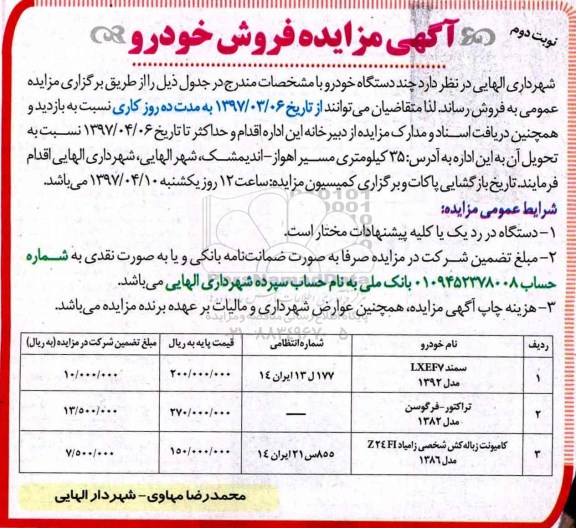 نوبت دوم
آگهی مزایده فروش خودرو
شهرداری الهایی در نظر دارد چند دستگاه خودرو با مشخصات مندرج در جدول ذیل را از طریق برگزاری مزایده
عمومی به فروش رساند. لذا متقاضیان می‌توانند از تاریخ ۱۳۹۷/۰۳/۰۶ به مدت ده روز کاری نسبت به بازدید و
همچنین دریافت اسناد و مدارک مزایده از دبیرخانه این اداره اقدام و حداکثر تا تاریخ ۱۳۹۷/۰۴/۰۶ نسبت به
تحویل آن به این اداره به آدرس: ۳۵ کیلومتری مسیر اهواز-اندیمشک، شهر الهایی، شهرداری الهایی اقدام
فرمایند. تاریخ بازگشایی پاکات و برگزاری کمیسیون مزایده: ساعت ۱۲ روز یکشنبه ۱۳۹۷/۰۴/۱۰ می‌باشد.
شرایط عمومی مزایده:
۱- دستگاه در رد یک یا کلیه پیشنهادات مختار است.
۲- مبلغ تضمین شرکت در مزایده صرفا به صورت ضمانت‌نامه بانکی و یا به صورت نقدی به شماره
حساب ۰۱۰۹۴۵۲۳۷۸۰۰۸ بانک ملی به نام حساب سپرده شهرداری الهایی می‌باشد.
۳- هزینه چاپ آگهی مزایده، همچنین عوارض شهرداری و مالیات بر عهده برنده مزایده می‌باشد.
ردیف نام خودرو شماره انتظامی قیمت پایه به ریال مبلغ تضمین شرکت در مزایده (به ریال)
۱ سمند LXEF۷ مدل ۱۳۹۲ ۱۷۷ ل ۱۳ ایران ۱۴ ۲۰۰/۰۰۰/۰۰۰ ۱۰/۰۰۰/۰۰۰
۲ تراکتور-فرگوسن مدل ۱۳۸۲ — ۲۷۰/۰۰۰/۰۰۰ ۱۳/۵۰۰/۰۰۰
۳ کامیونت زباله کش شخصی زامیاد Z۲۴FI مدل ۱۳۸۶ ۸۵۵س۲۱ ایران ۱۴ ۱۵۰/۰۰۰/۰۰۰ ۷/۵۰۰/۰۰۰
محمدرضا مهاوی - شهردار الهایی